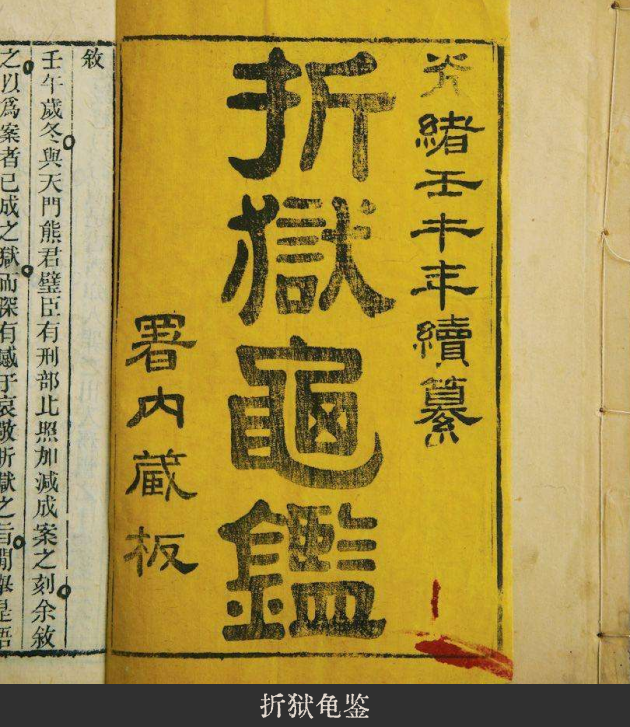 光緒壬午年續纂
折獄龜鑑
署內藏板
敘
壬午歲冬與天門熊君璧臣有刑部比照加減成案之刻余敘
之以爲案者已成之獄而深有感于哀敬折獄之旨閒舉是語
折狱龟鉴